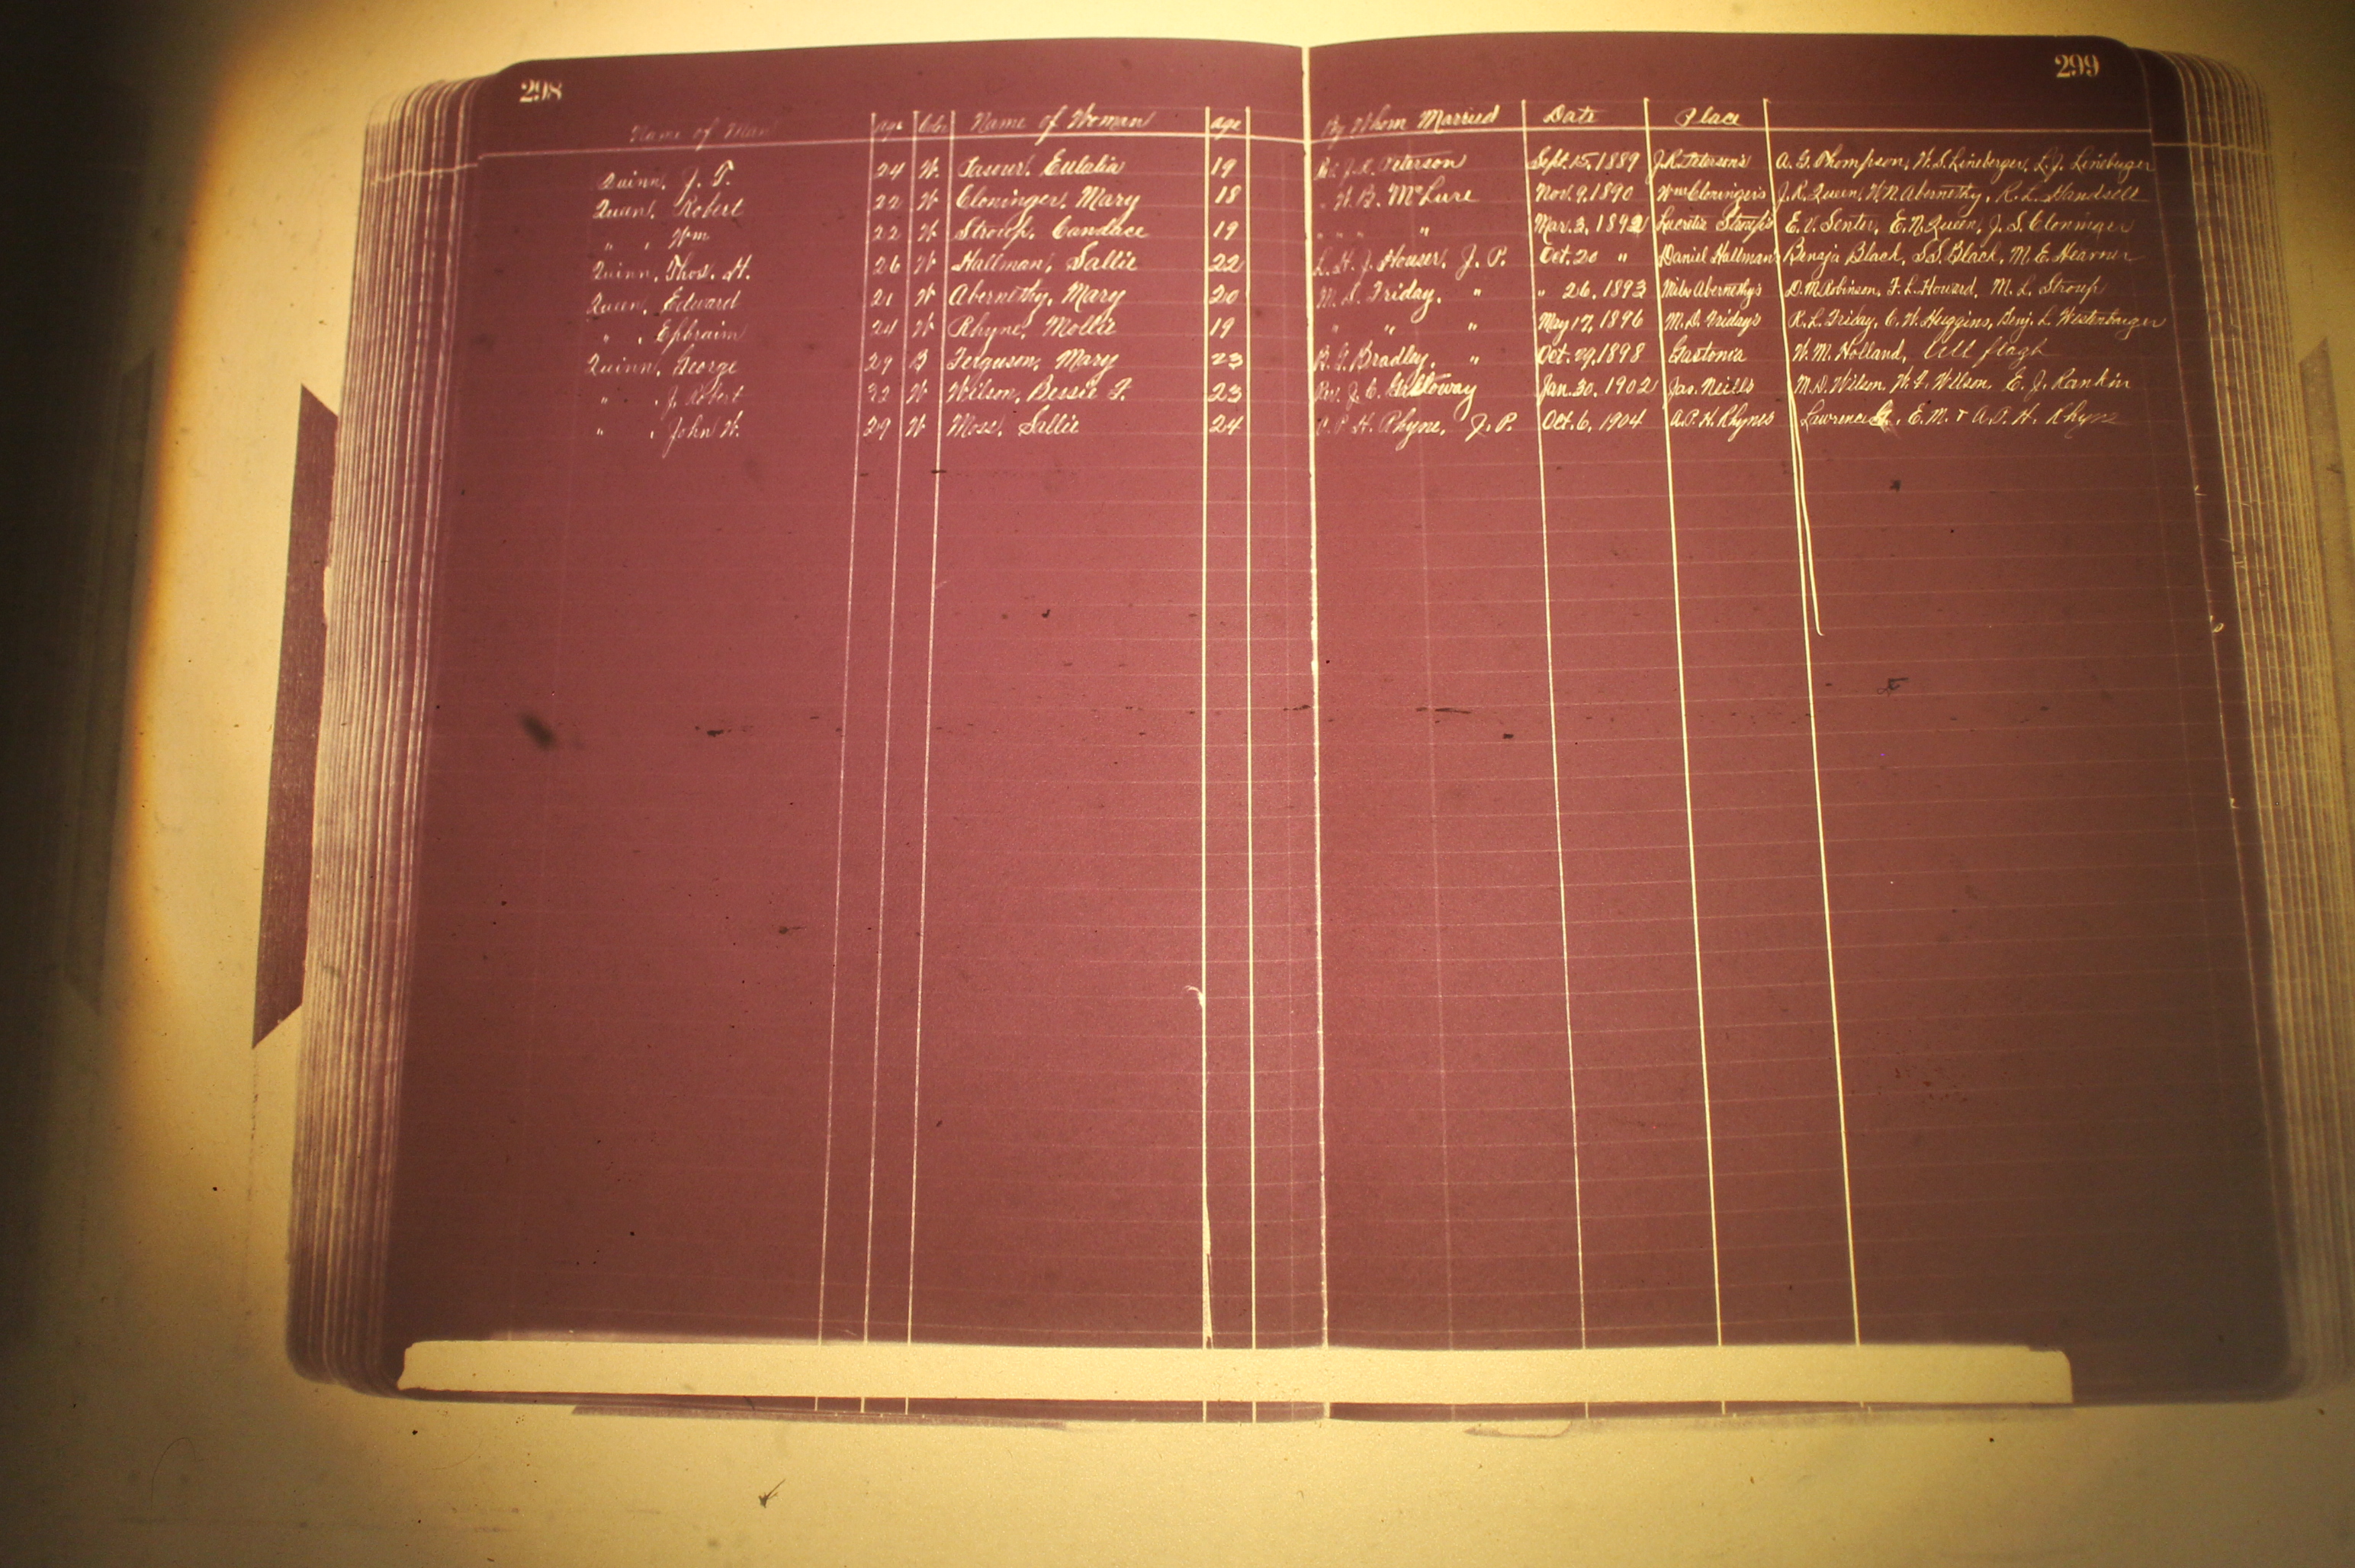 298 299
Name of Man age Color Name of Woman age By Whom Married Date Place
Quinn, J. T. 24 W. Pasour, Eulalia 19 Rev. J. R. Peterson Sept. 15, 1889 J. R. Peterson's A. G. Thompson, W. S. Lineberger, L. J. Lineberger
Queen, Robert 22 W Cloninger, Mary 18 " W. B. McLure Nov. 9, 1890 Wm Cloninger's J. R. Queen, W. N. Abernethy, R. L. Handsell
" , Wm 22 W Stroup, Candace 19 " " " " Mar. 3, 1892 Lucretia Stroup's E. V. Senter, E. N. Queen, J. S. Cloninger
Quinn, Thos. H. 26 W Hallman, Sallie 22 L. H. J. Houser, J. P. Oct. 20 " Daniel Hallman Benaja Black, S. S. Black, M. E. Hearner
Queen, Edward 21 W Abernethy, Mary 20 M. D. Friday, " " 26, 1893 Miles Abernethy's D. M. Robinson, F. L. Howard, M. L. Stroup
" , Ephraim 24 W Rhyne, Mollie 19 " " " May 17, 1896 M. D. Friday's R. L. Friday, C. W. Huggins, Benj. L.
Quinn, George 29 B Ferguson, Mary 23 R. G. Bradley, " Oct. 29, 1898 Gastonia W. M. Holland,
" , J. Robert 32 W Wilson, Bessie F. 23 Rev. J. C. Galloway Jan. 30, 1902 Jas. Neill's M. D. Wilson, W. I. Wilson, E. J. Rankin
" , John W. 29 W Moss, Sallie 24 A. P. H. Rhyne, J. P. Oct. 6, 1904 A. P. H. Rhyne's Lawrence G., E. M. & A. P. H. Rhyne